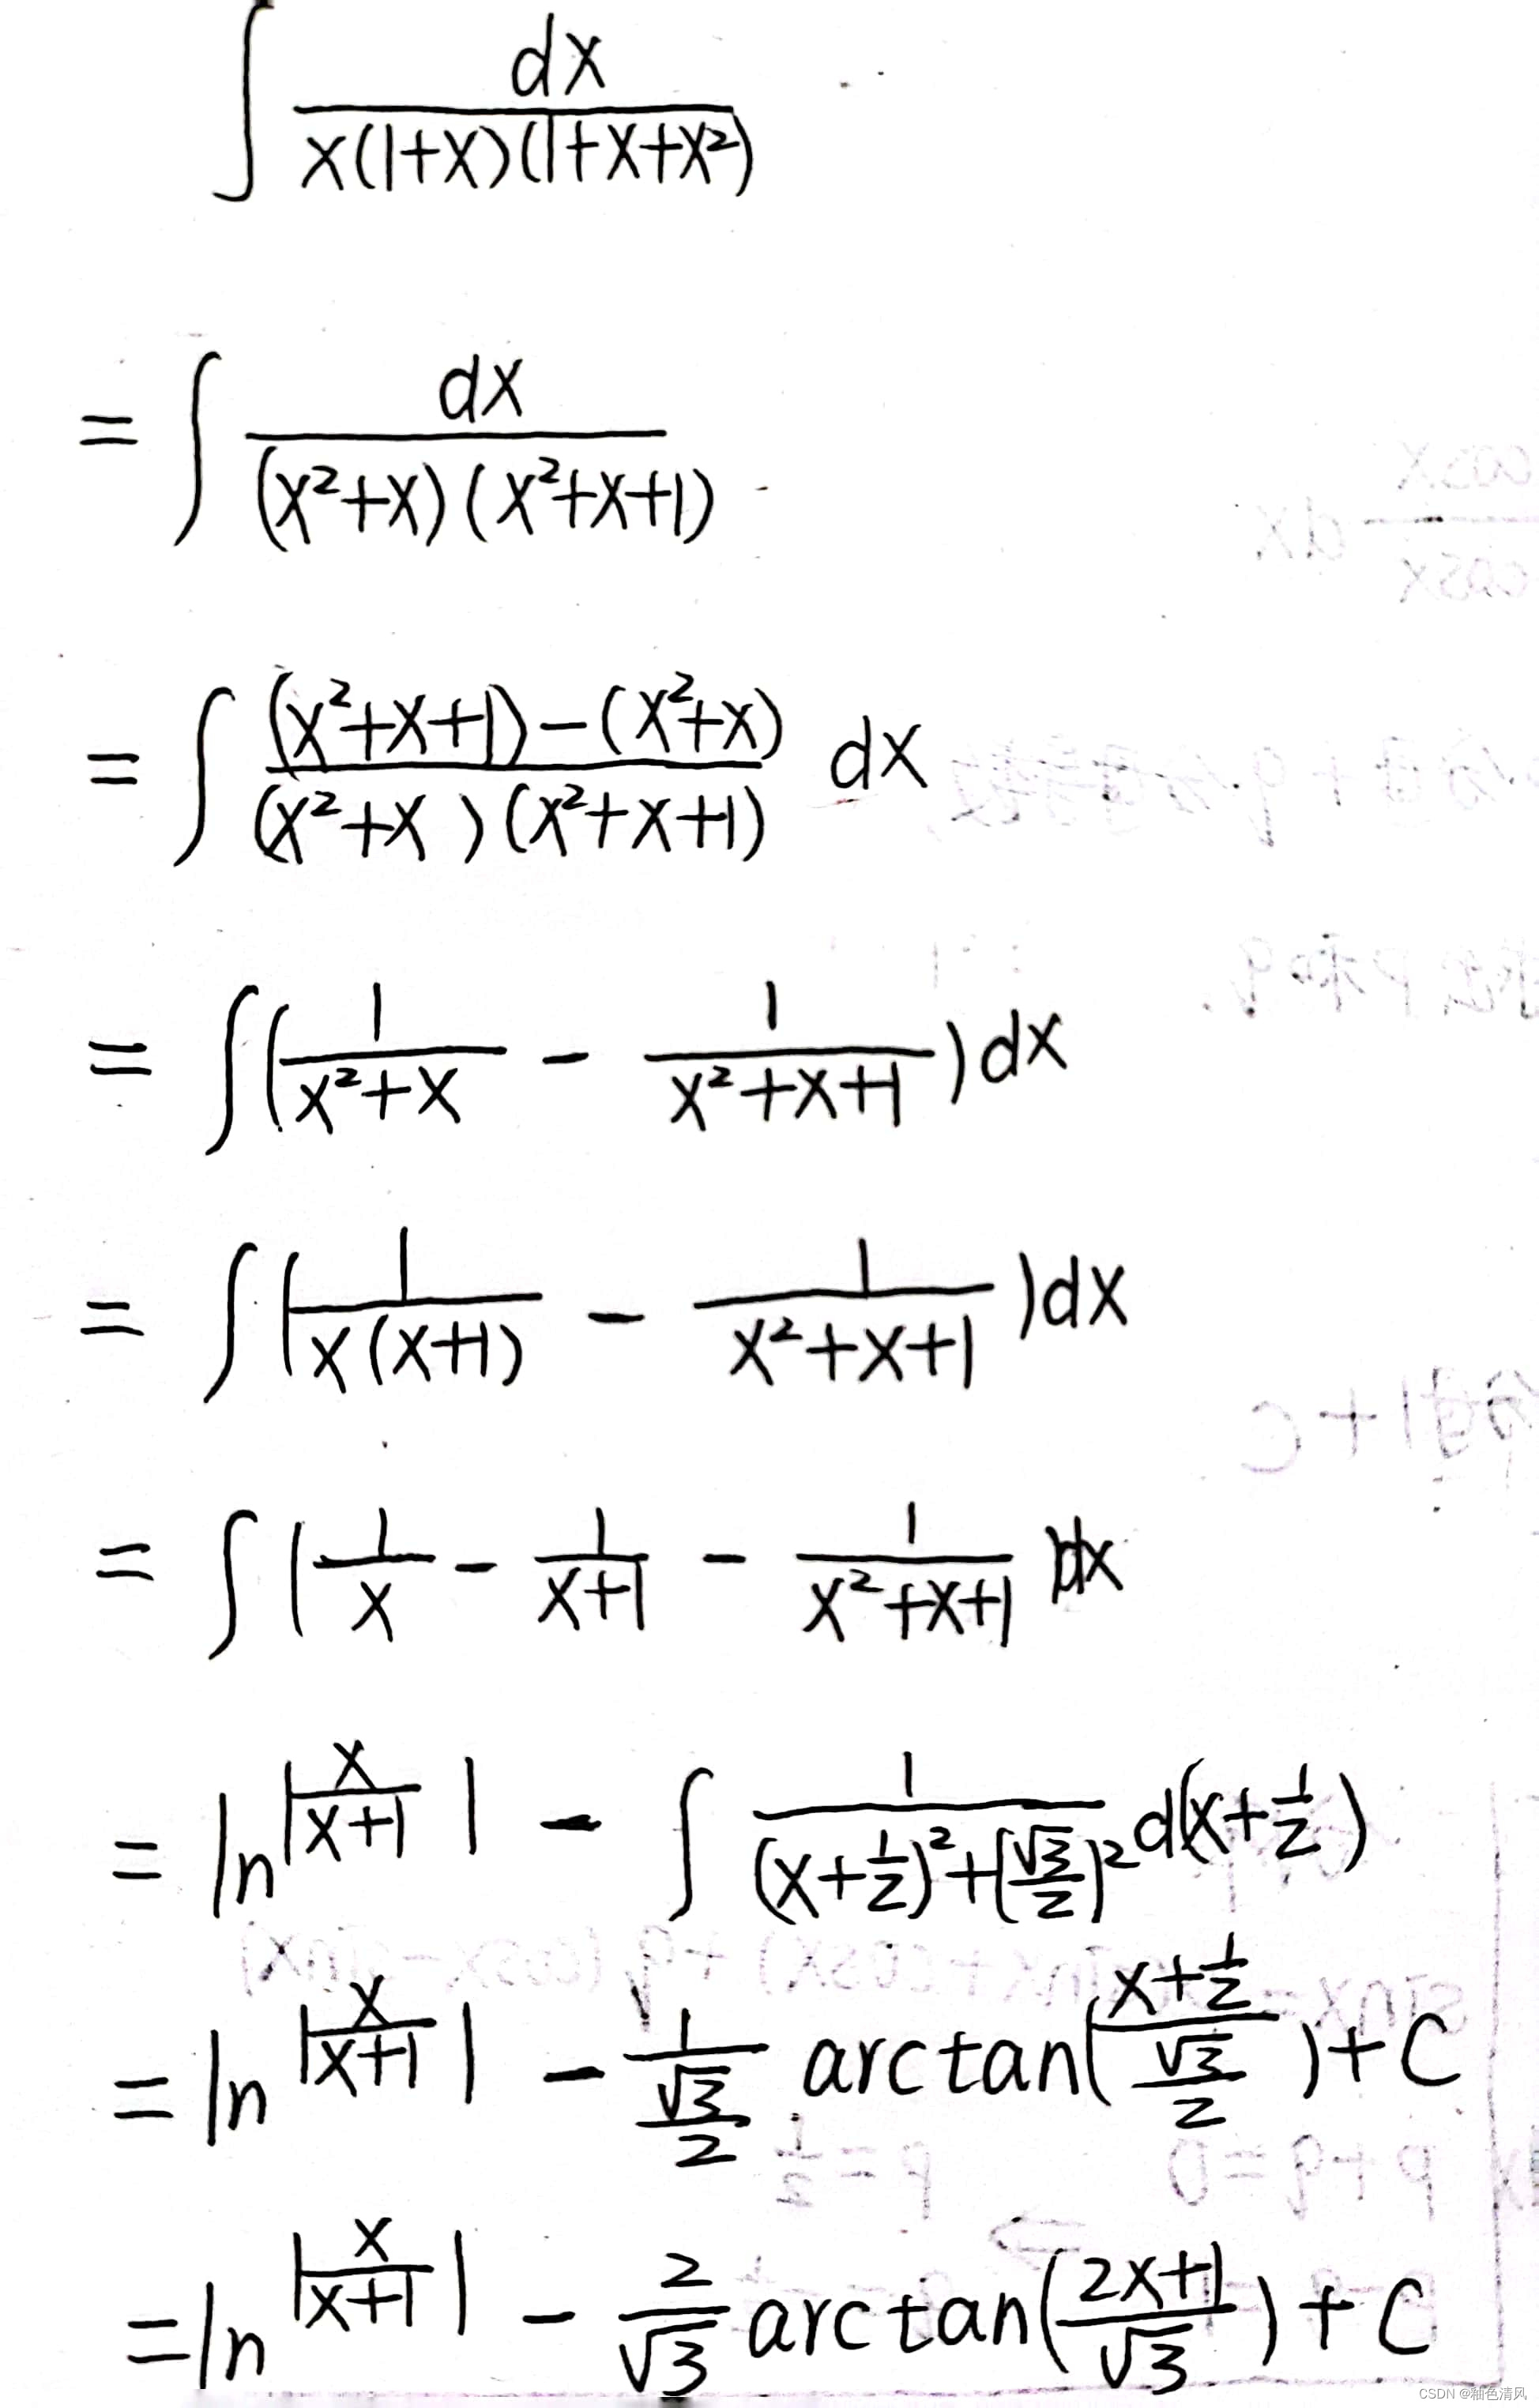 ∫ dx / x(1+x)(1+x+x²)
= ∫ dx / (x²+x)(x²+x+1)
= ∫ (x²+x+1)-(x²+x) / (x²+x)(x²+x+1) dx
= ∫ (1/(x²+x) - 1/(x²+x+1)) dx
= ∫ (1/(x(x+1)) - 1/(x²+x+1)) dx
= ∫ (1/x - 1/(x+1) - 1/(x²+x+1)) dx
= ln|x/(x+1)| - ∫ 1/((x+1/2)²+(√3/2)²) d(x+1/2)
= ln|x/(x+1)| - 1/(√3/2) arctan((x+1/2)/(√3/2)) + C
= ln|x/(x+1)| - 2/√3 arctan((2x+1)/√3) + C
CSDN @釉色清风